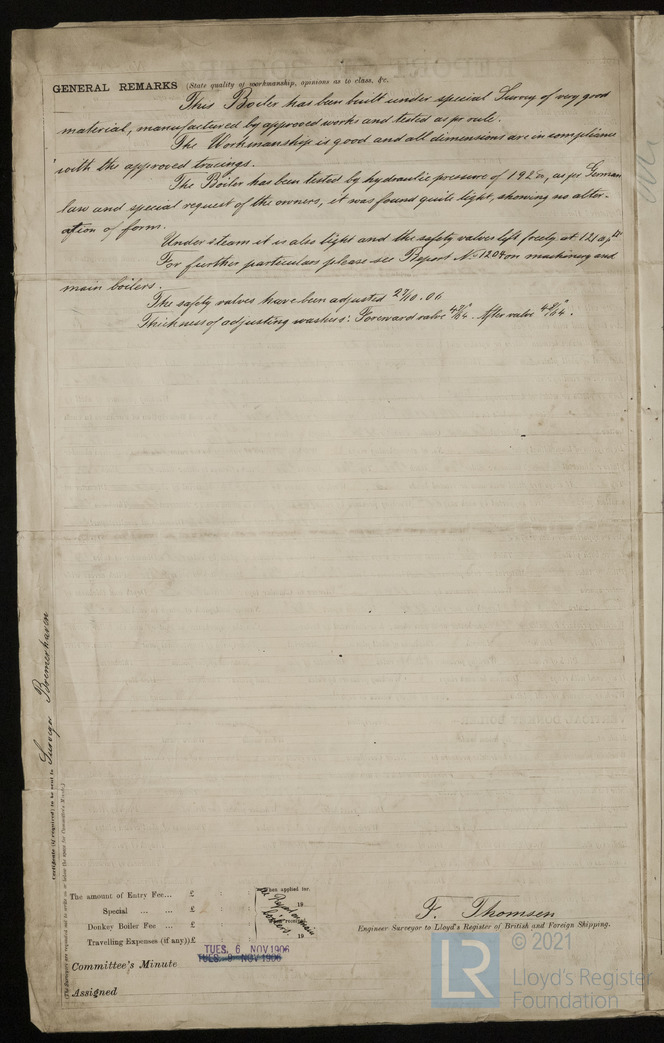 GENERAL REMARKS (State quality of workmanship, opinions as to class, &c.
This Boiler has been built under special Survey of very good
material, manufactured by approved works and tested as pr rule.
The Workmanship is good and all dimensions are in compliance
with the approved tracings.
The Boiler has been tested by hydraulic pressure of 192 as per German
law and special request of the owners, it was found quite tight, showing no alter-
ation of form.
Under steam it is also tight and the safety valves lift freely at 121
For further particulars please see Report No 1209 on machinery and
main boilers.
The safety valves have been adjusted 27/10.06
Thickness of adjusting washers: Foreward valve /64. After valve /64.
Certificate (if required) to be sent to Surveyor Bremerhaven
(The Surveyors are requested not to write on or below the space for Committee's Minute.)
The amount of Entry Fee... £ : :
Special ... ... £ : :
Donkey Boiler Fee ... £ : :
Travelling Expenses (if any) £ : :
When applied for,
19
received,
19
Report on main
boilers.
F. Thomsen
Engineer Surveyor to Lloyd's Register of British and Foreign Shipping.
TUES. 6 NOV 1906
TUES. NOV 1906
Committee's Minute
Assigned
LR
© 2021
Lloyd's Register
Foundation